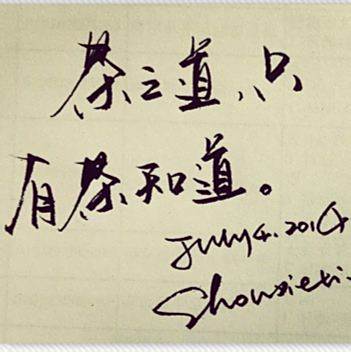 茶之道,只
有茶知道。
July 4. 2014